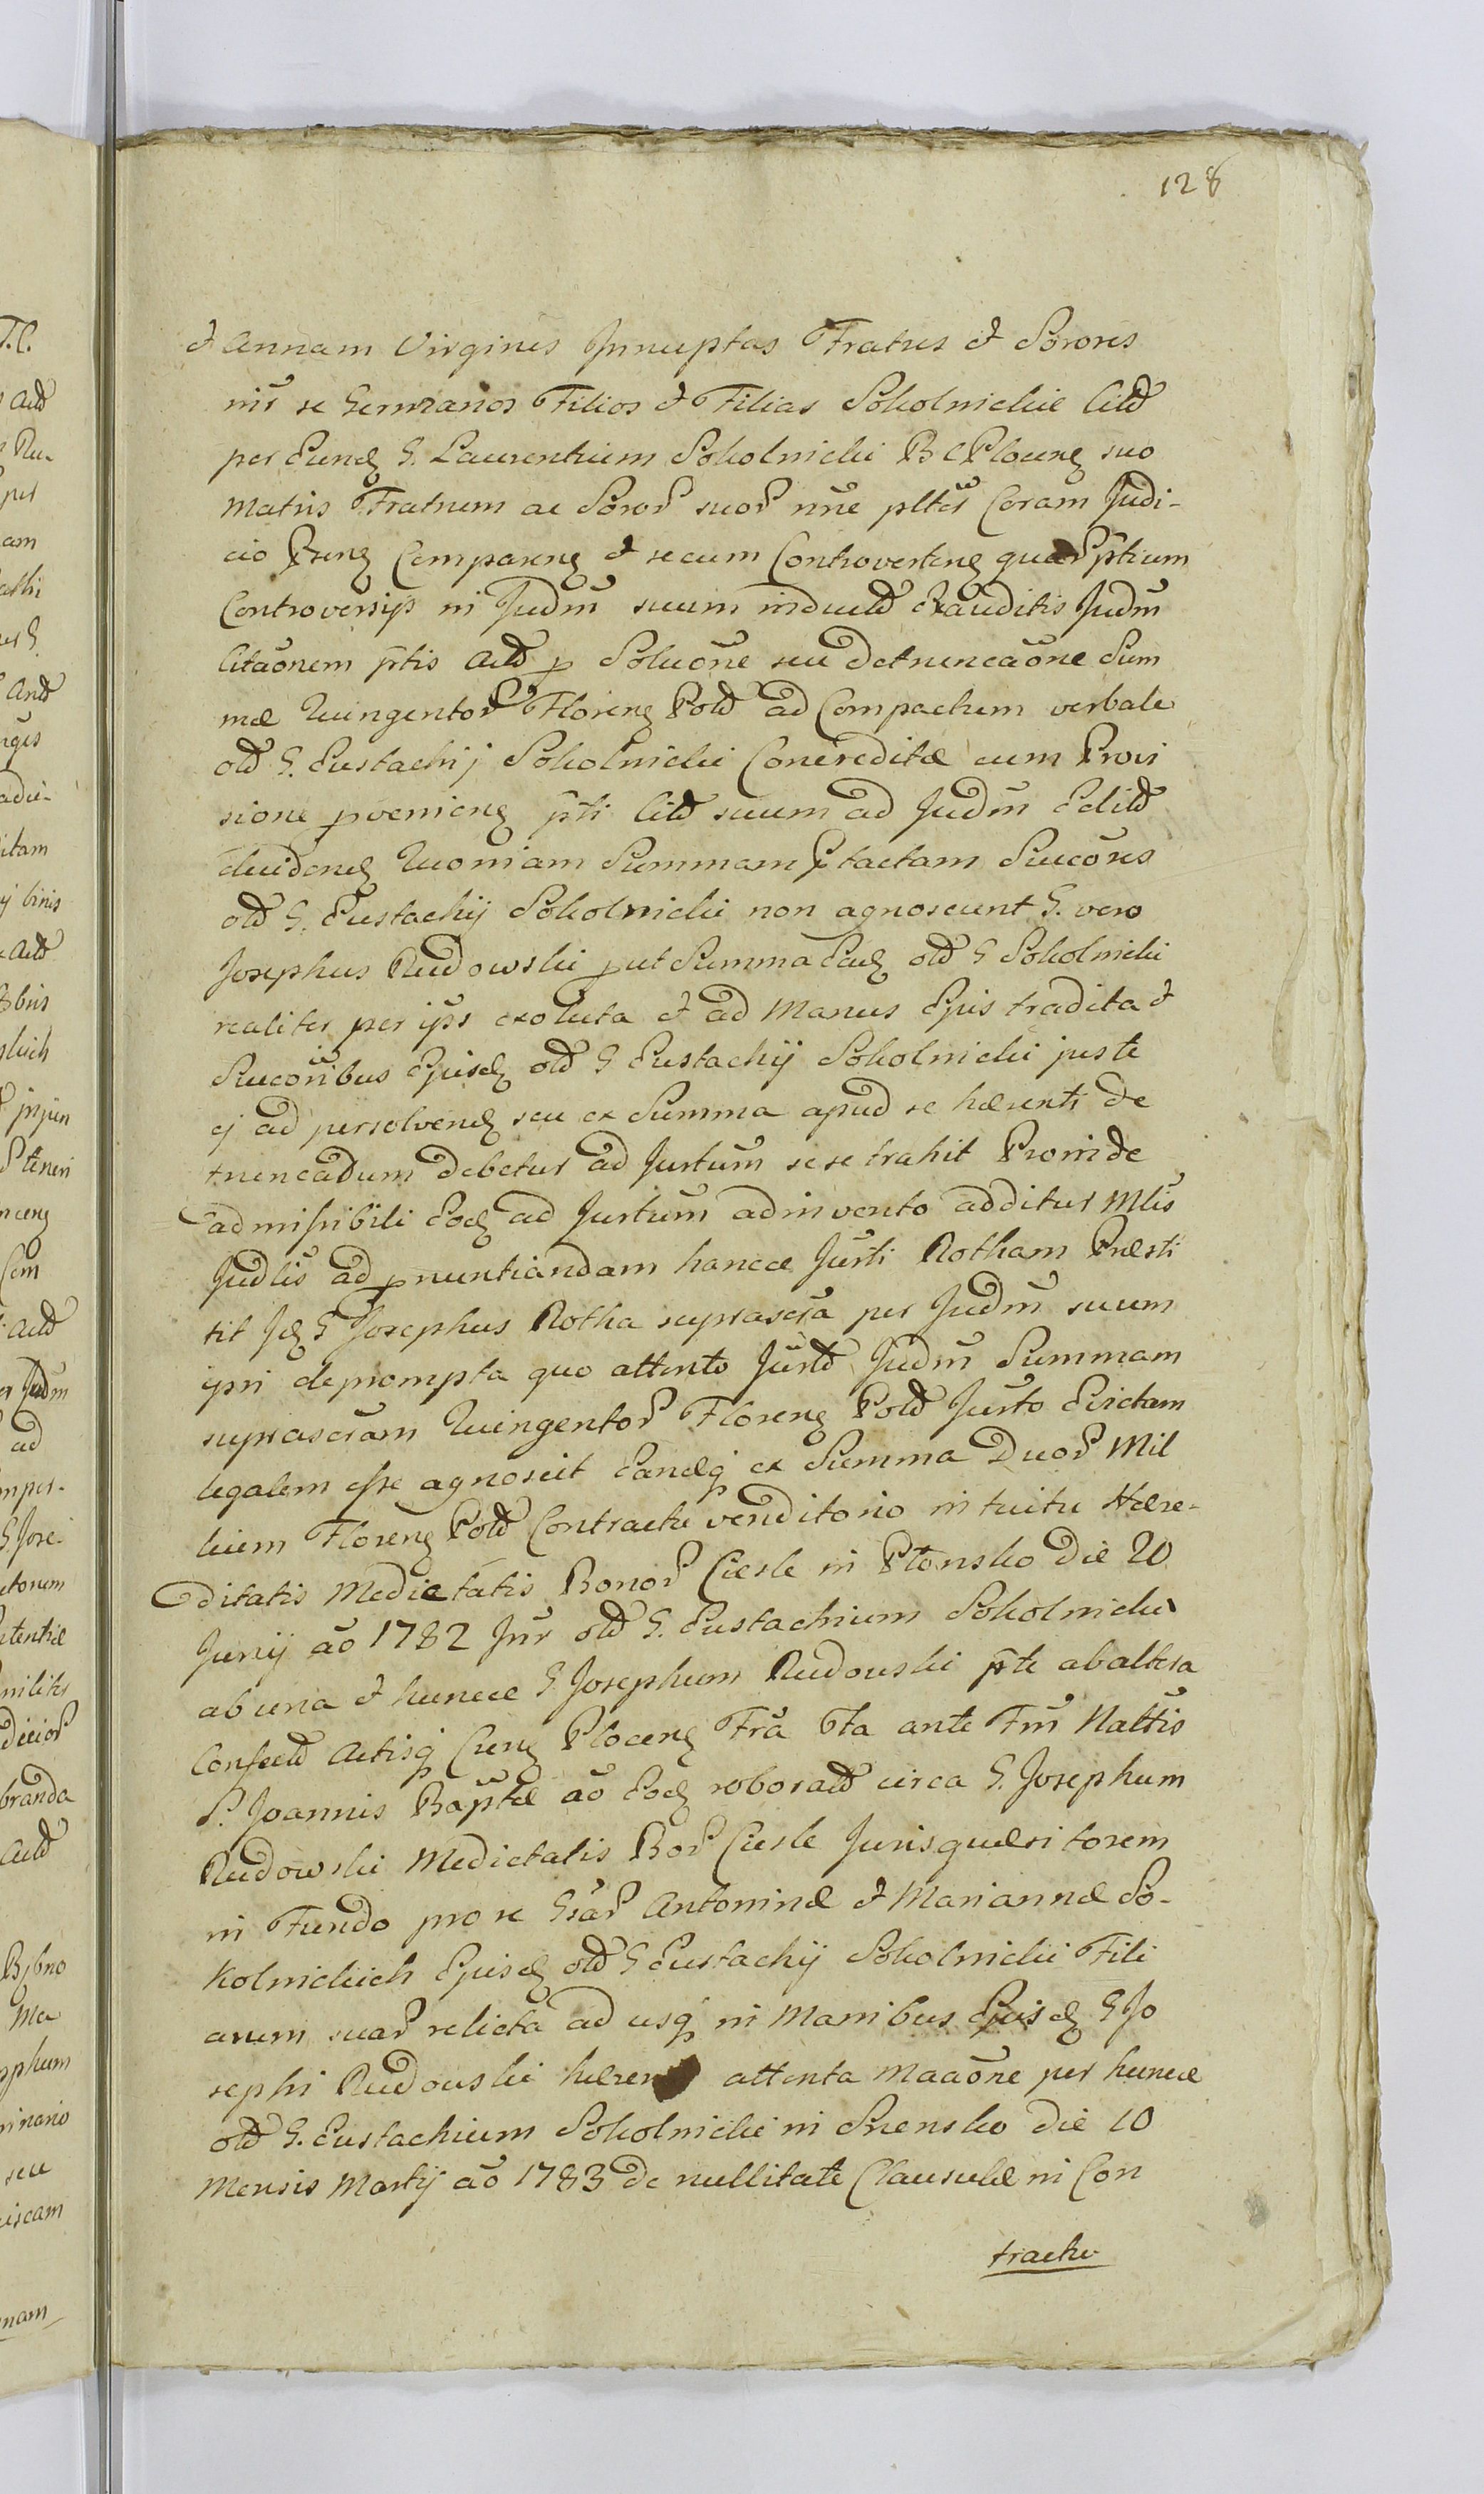 128
et Annam Virgines Innuptas Fratres et Sorores
inr se Germanos Filios et Filias Sokolnickie Citt
per Eund G. Laurentium Sokolnicki B C Plocen suo
Matris Fratrum ac Soror suor nne pltr Coram Judi-
cio Pren Comparen et secum Controverten quar ptium
Controversijs in Judm suum induct Exauditis Judm
Citaonem ptis Act p Soluone seu detruncaone Sum
mæ Quingentor Floren Pold ad Compactum verbale
old G. Eustachij Sokolnicki Concreditæ cum Provi
sione pvenien pti Citt suum ad Judm Edit
eluidend Quoniam Summam Ptactam Succores
old G. Eustachij Sokolnicki non agnoscunt G. vero
Josephus Rudowski put Summa Ead old G Sokolnicki
realiter per ips exoluta et ad Manus Ejus tradita et
Succoribus Ejusd old G Eustachij Sokolnicki juste
ej ad persolvend seu ex Summa apud se hærenti de
truncadum debetur ad Jurtum sese trahit Proinde
admissibili Eod ad Jurtum adinvento additur Mlis
Judlis ad pnuntiandam hancce Jurti Rotham Præsti
tit Jd G Josephus Rotha suprascra per Judm suum
ipsi deprompta quo attento Jurto Judm Summam
suprascram Quingentor Floren Pold Jurto Evictam
legalem esse agnoscit Eandq ex Summa Duor Mil
lium Floren Pold Contractu venditorio intuitu Hære-
ditatis Medietatis Bonor Ciesle in Płonsko Die 20
Junij ao 1782 Inr old G. Eustachium Sokolnicki
ab una et huncce G Josephum Rudowski pte ab altera
Confect Actisq Cren Plocen Fra 6ta ante Fm Nattis
S. Joannis Baptæ ao Eod roborat circa G. Josephum
Rudowski Medietatis Bor Ciesle Jurisquæsitorem
in Fundo pro se Gsar Antoninæ et Mariannæ So-
kolnickich Ejusd old G Eustachij Sokolnicki Fili
arum suar relicta ad usq in Manibus Ejusd G Jo
sephi Rudowski hæren attenta Maaone per huncce
old G. Eustachium Sokolnicki in Srensko die 10
Mensis Martij ao 1783 de nullitate Clausulæ in Con
tractu